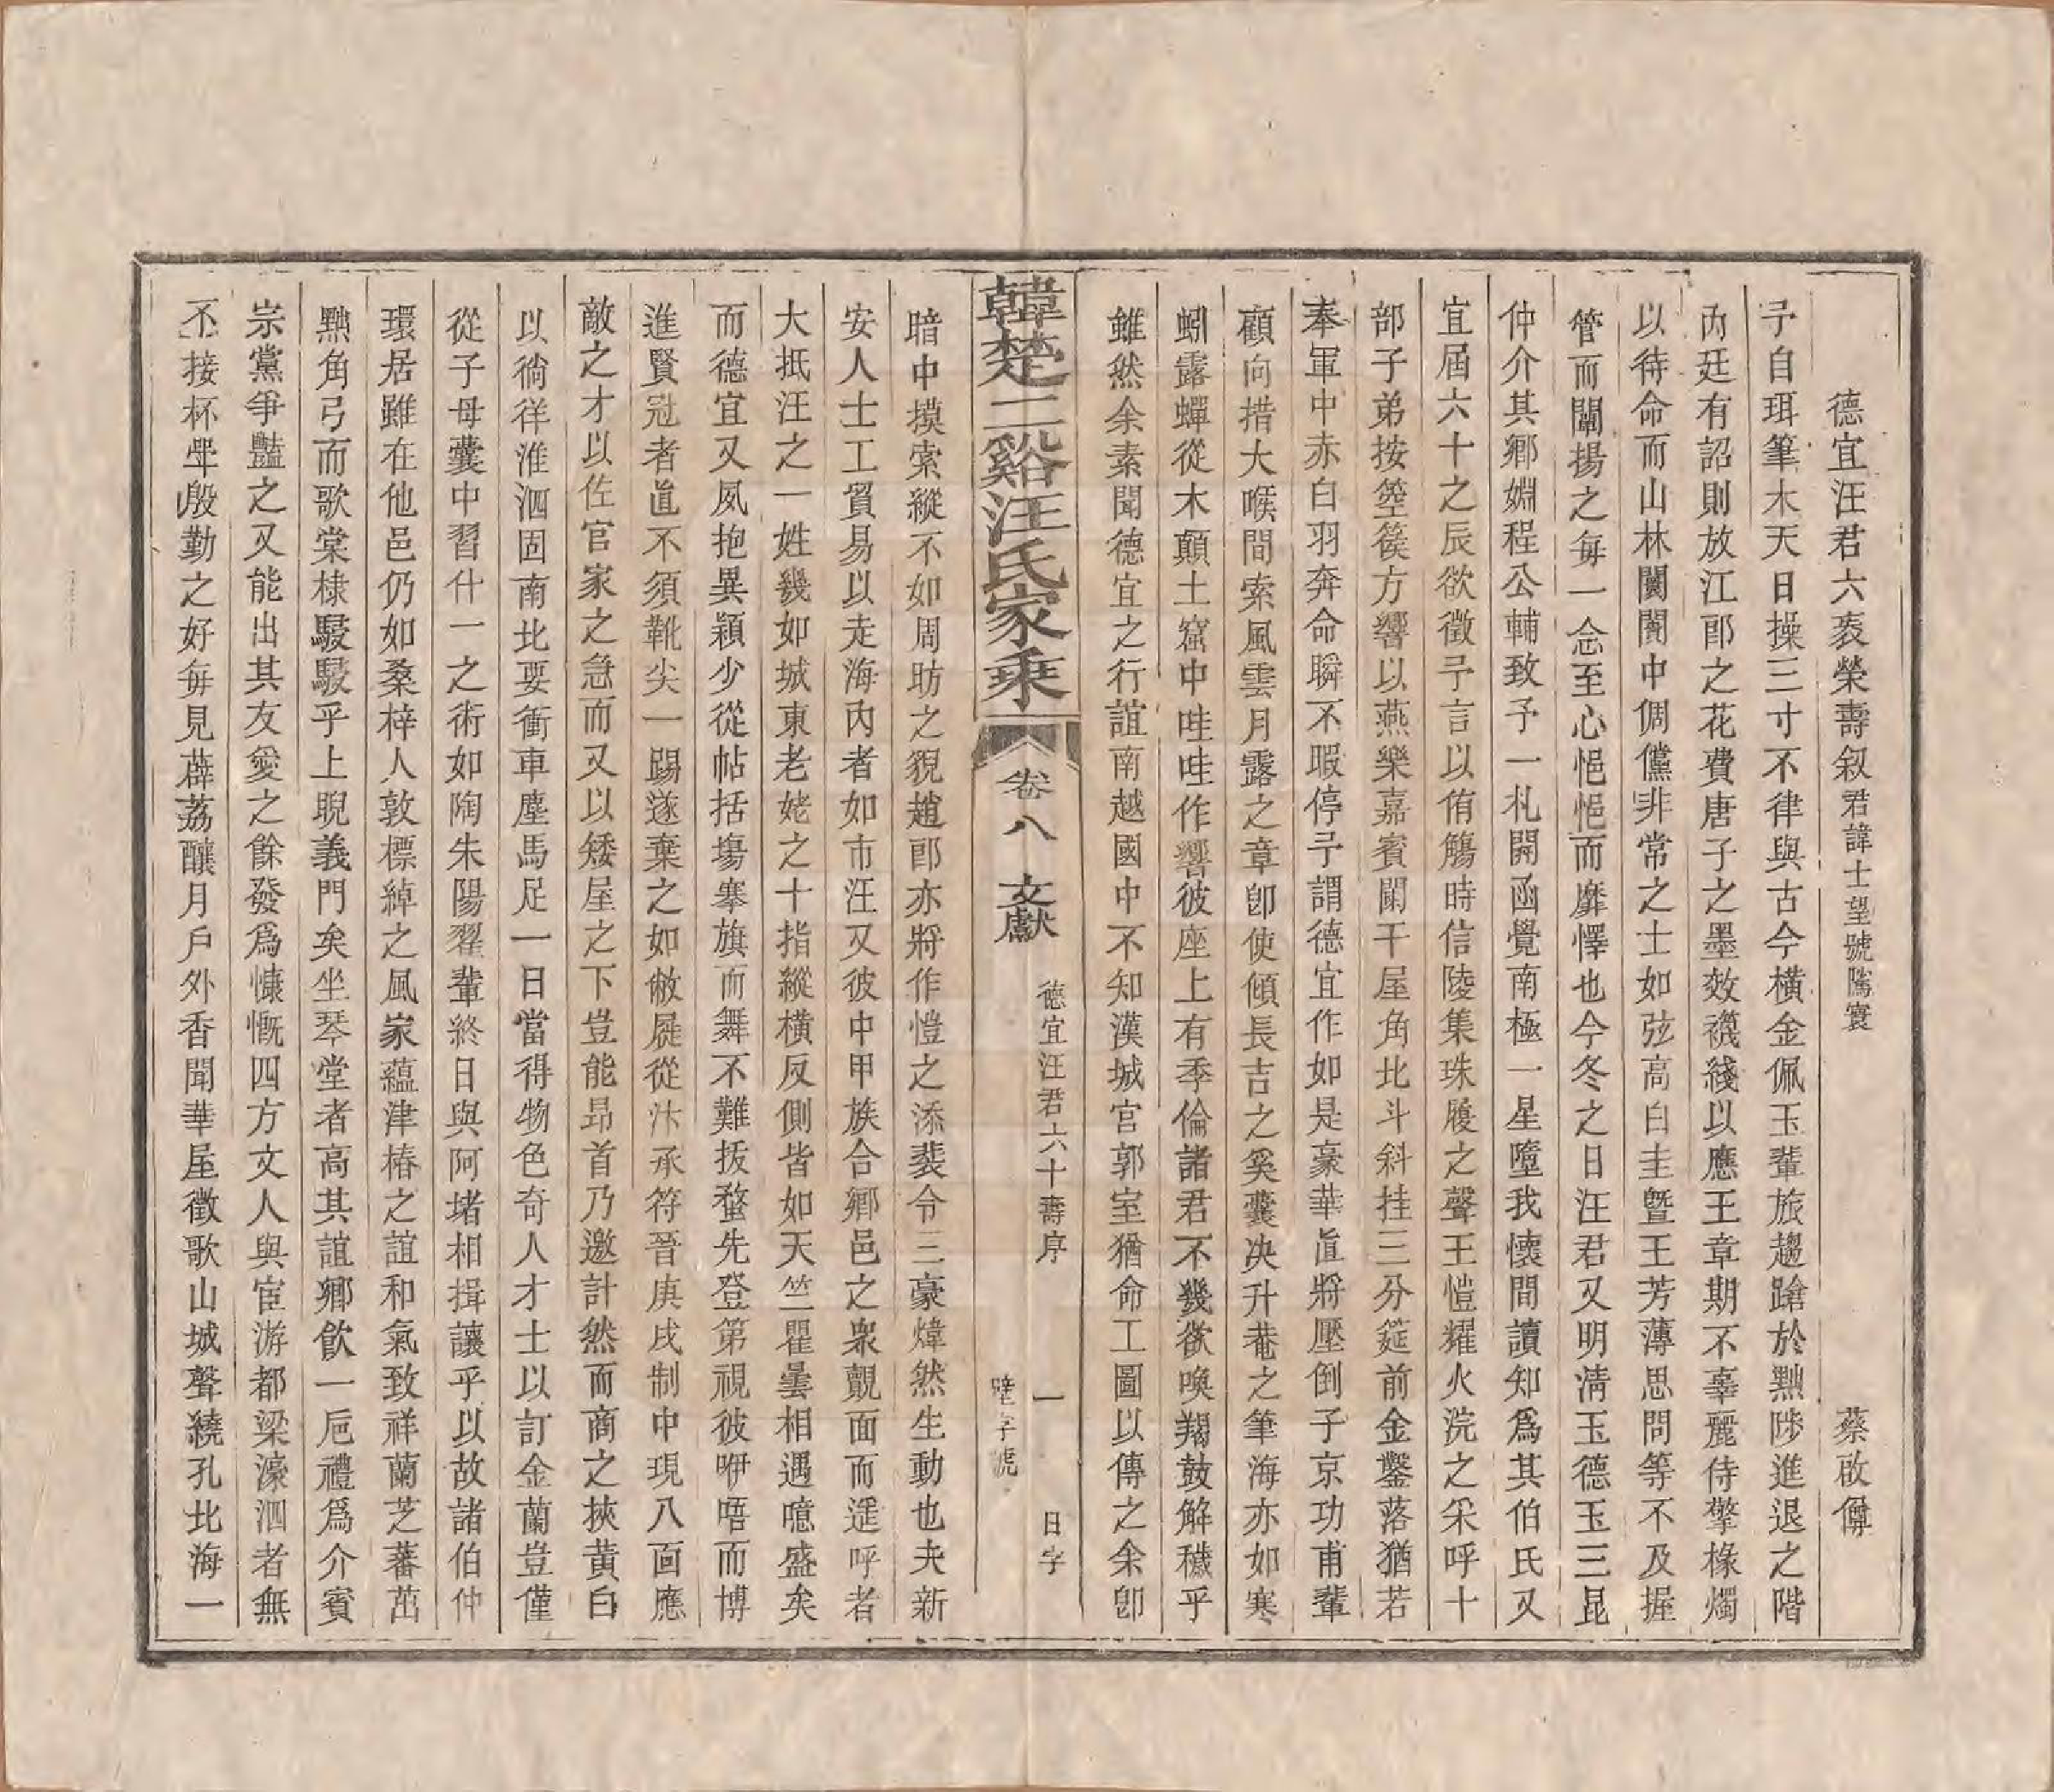 德宜汪君六袠榮壽叙君諱士望號隲寰 蔡啟僔
予自珥筆木天日操三寸不律與古今橫金佩玉輩旅趨蹌於黝陟進退之階
內廷有詔則放江郎之花費唐子之墨效襪綫以應王章期不辜麗侍擎椽燭
以待命而山林闤闠中倜儻非常之士如弦高白圭暨王芳薄思問等不及握
管而闡揚之每一念至心悒悒而靡懌也今冬之日汪君又明淸玉德玉三昆
仲介其鄉婣程公輔致予一札開函覺南極一星墮我懷間讀知爲其伯氏又
宜屆六十之辰欲徵予言以侑觴時信陵集珠履之聲王愷耀火浣之采呼十
部子弟按箜篌方響以燕樂嘉賓闌干屋角北斗斜挂三分筵前金鑿落猶若
奉軍中赤白羽奔命瞬不暇停予謂德宜作如是豪華眞將壓倒子京功甫輩
顧向措大喉間索風雲月露之章卽使傾長吉之奚囊决升菴之筆海亦如寒
蚓露蟬從木顛土窟中哇哇作響彼座上有季倫諸君不幾欲喚羯鼓解穢乎
雖然余素聞德宜之行誼南越國中不知漢城官郭室猶命工圖以傳之余卽
韓楚二谿汪氏家乘 卷八 文獻 德宜汪君六十壽序 一 日字
字號
暗中摸索縱不如周昉之貌趙郎亦將作愷之添裴令三豪煒然生動也夫新
安人士工貿易以走海內者如市汪又彼中甲族合鄉邑之衆覿面而遥呼者
大抵汪之一姓幾如城東老姥之十指縱橫反側皆如天竺瞿曇相遇噫盛矣
而德宜又夙抱異穎少從帖括塲搴旗而舞不難拔蝥先登第視彼咿唔而博
進賢冠者眞不須靴尖一踢遂棄之如敝屣從汴承符晉庚戌制中現八面應
敵之才以佐官家之急而又以矮屋之下豈能昂首乃邀計然而商之挾黃白
以徜徉淮泗固南北要衝車塵馬足一日當得物色奇人才士以訂金蘭豈僅
從子母囊中習什一之術如陶朱陽翟輩終日與阿堵相揖讓乎以故諸伯仲
環居雖在他邑仍如桑梓人敦標綽之風家蘊津椿之誼和氣致祥蘭芝蕃茁
黝角弓而歌棠棣駸駸乎上睨義門矣坐琴堂者高其誼鄉飮一巵禮爲介賓
宗黨爭豔之又能出其友愛之餘發爲慷慨四方文人與宦游都梁濠泗者無
不接杯舉殷勤之好每見薜荔釀月戶外香聞華屋徵歌山城聲繞孔北海一